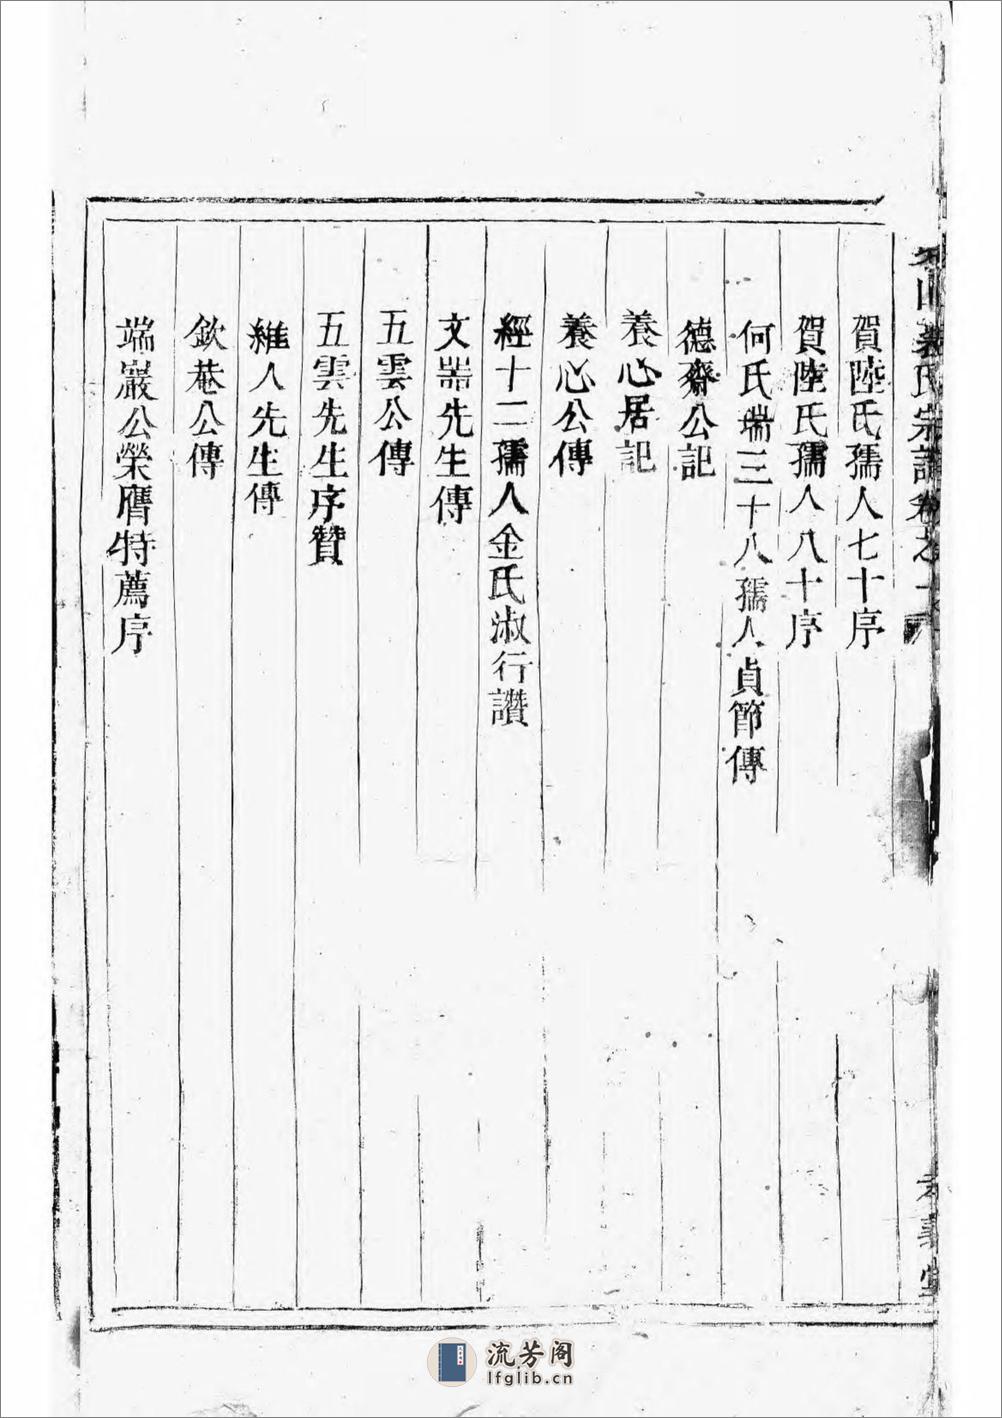 賀陸氏孺人七十序
賀陸氏孺人八十序
何氏瑞三十八孺人貞節傳
德齋公記
養心居記
養心公傳
經十二孺人金氏淑行讚
文器先生傳
五雲公傳
五雲先生序贊
維人先生傳
欽菴公傳
端巖公榮膺特薦序
山 氏宗譜卷之
義堂
流芳阁
lfglib.cn